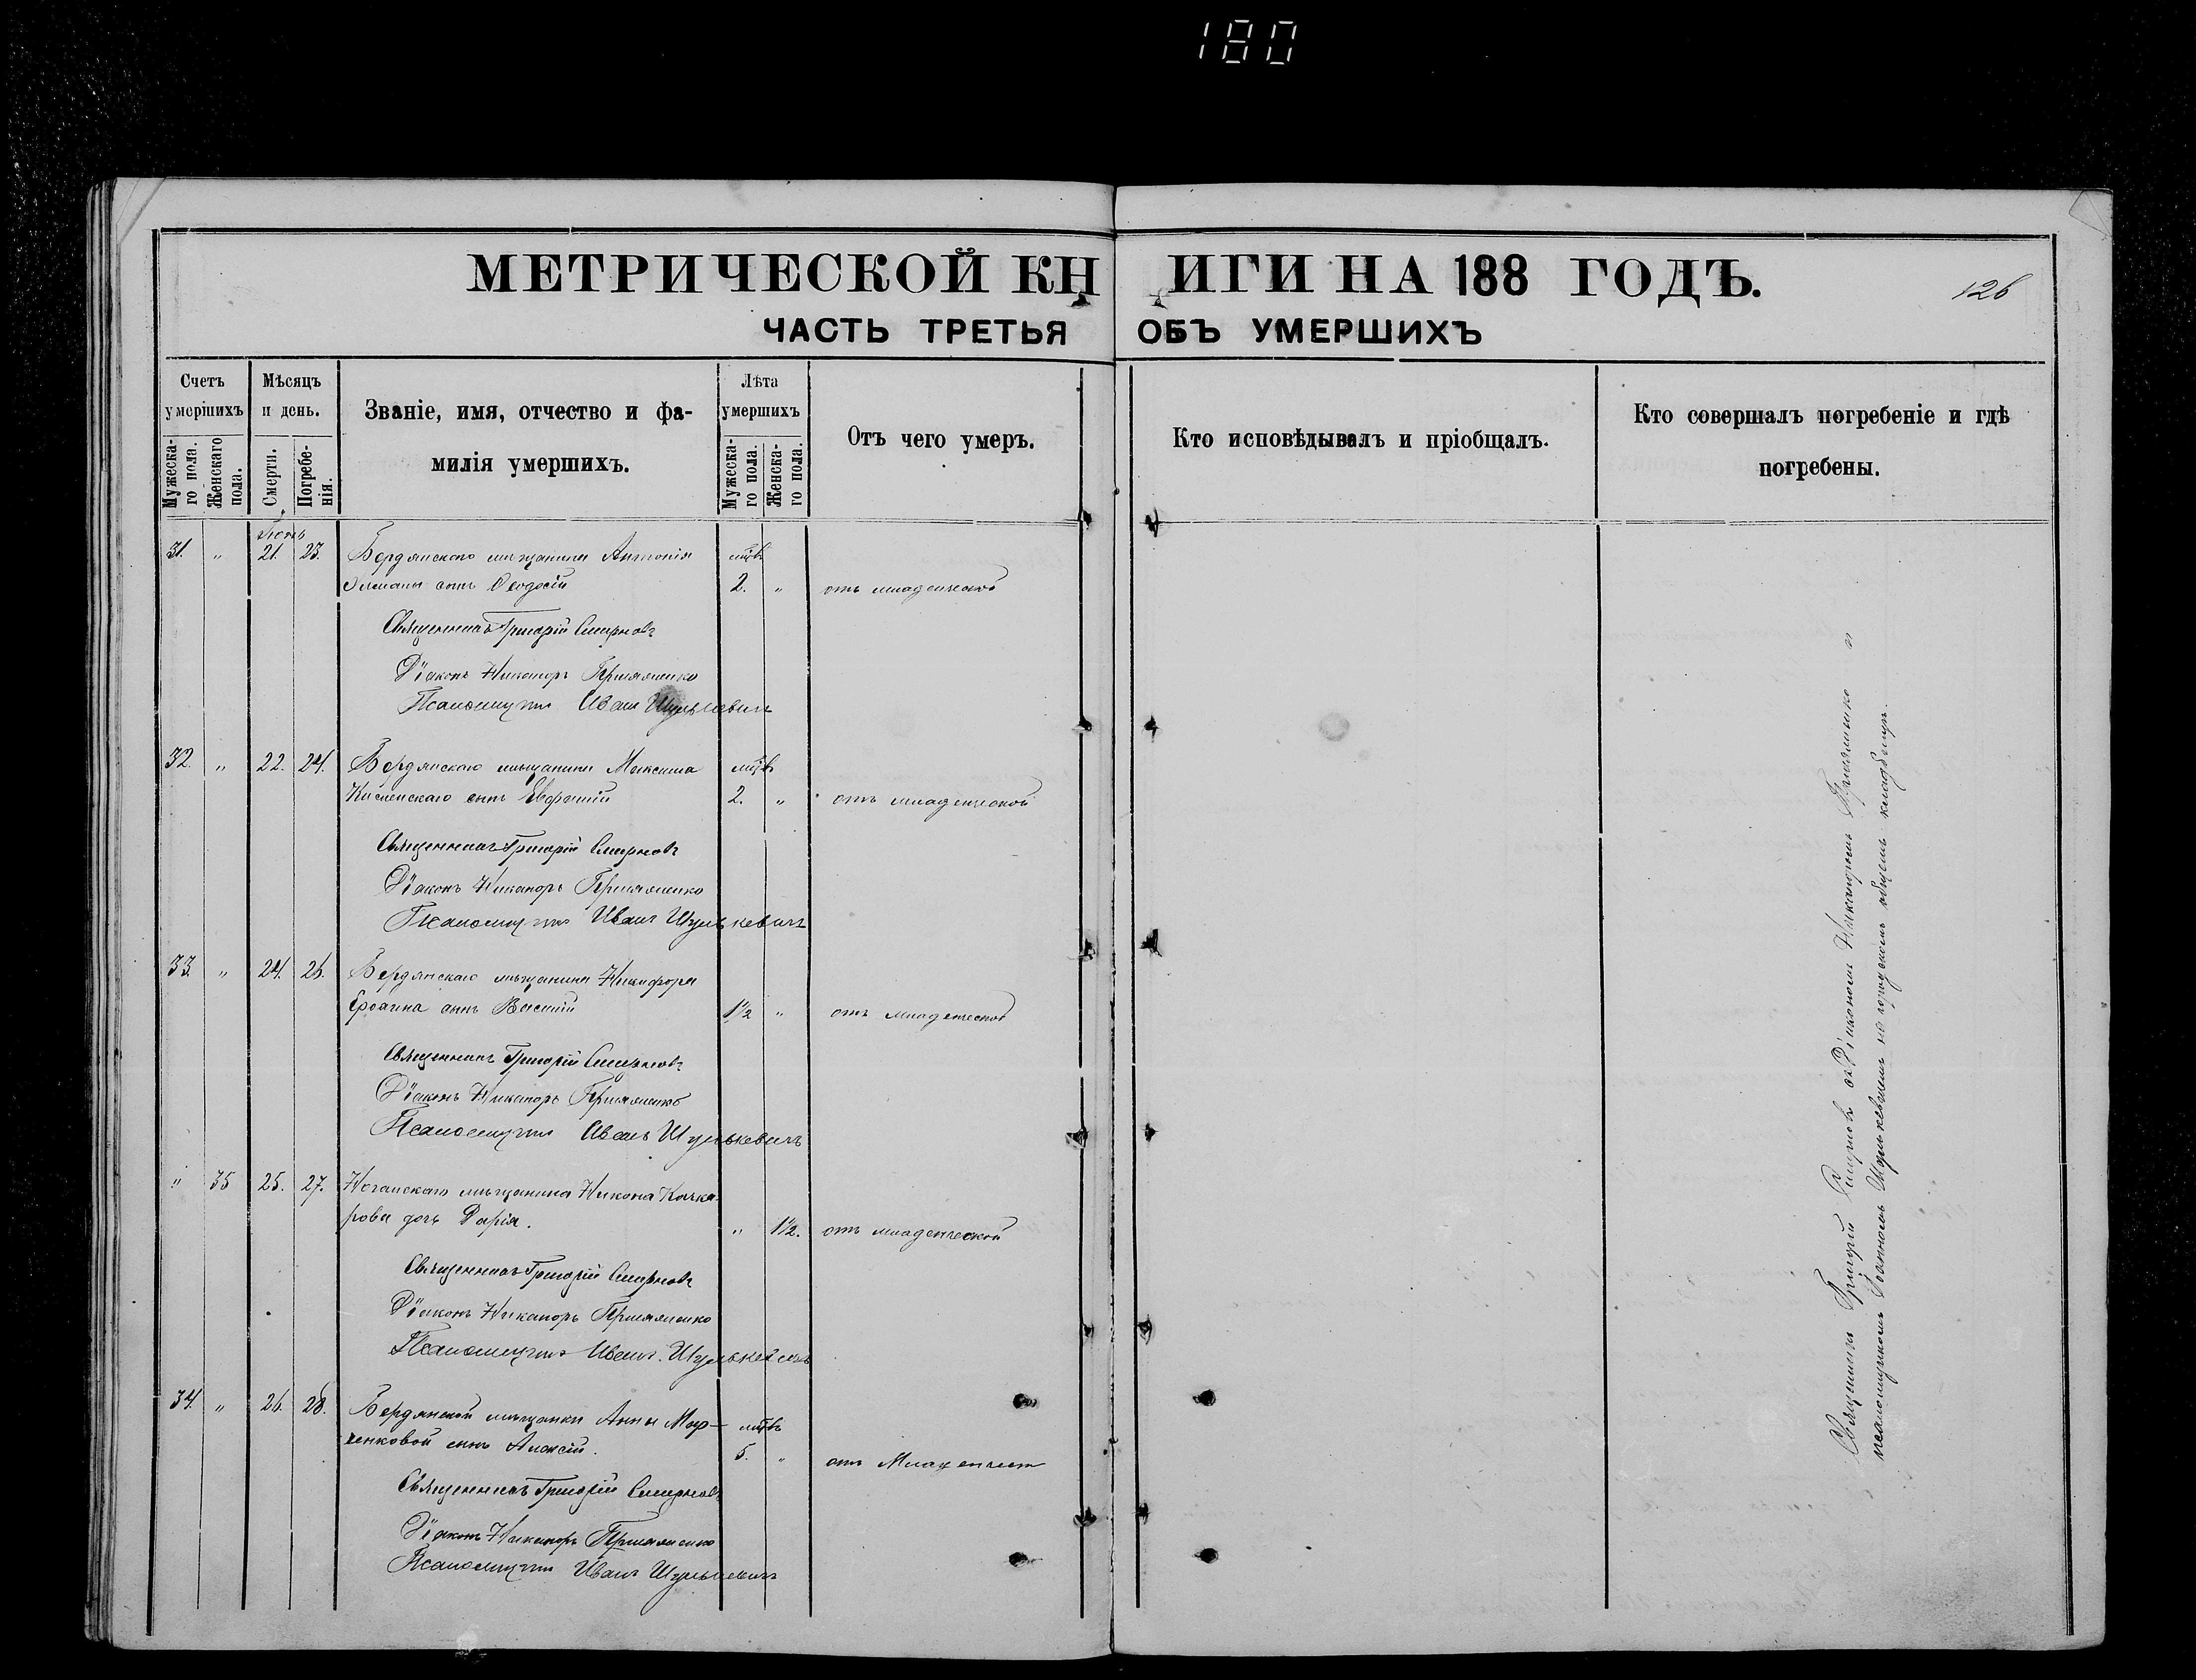 180
МЕТРИЧЕСКОЙ КНИГИ НА 188 ГОДЪ.
126
ЧАСТЬ ТРЕТЬЯ ОБЪ УМЕРШИХЪ
Счетъ умершихъ
Мужеска-го пола.
Женскаго пола.
Мѣсяцъ и день.
Смерти.
Погребе-нія.
Званіе, имя, отчество и фа-
милія умершихъ.
Лѣта умершихъ
Мужеска-го пола.
Женска-го пола.
Отъ чего умеръ.
Кто исповѣдывалъ и пріобщалъ.
Кто совершалъ погребеніе и гдѣ
погребены.
31. " 21. 23. Бердянскаго мѣщанина Антонія
сынъ Ѳеодосій 2. " отъ младенческой
Священникъ Григорій Смирновъ
Діаконъ Никаноръ
Псаломщикъ Иванъ Шулькевичъ
32. " 22. 24. Бердянскаго мѣщанина Максима
сынъ 2. " отъ младенческой
Священникъ Григорій Смирновъ
Діаконъ Никаноръ
Псаломщикъ Иванъ Шулькевичъ
33. " 24. 26. Бердянскаго мѣщанина Никифора
сынъ Василій 1½ " отъ младенческой
Священникъ Григорій Смирновъ
Діаконъ Никаноръ
Псаломщикъ Иванъ Шулькевичъ
" 35 25. 27. Ногайскаго мѣщанина Никона Качка-
рова дочь Дарія. " 1½. отъ младенческой
Священникъ Григорій Смирновъ
Діаконъ Никаноръ
Псаломщикъ Иванъ Шулькевичъ
34. " 26. 28. Бердянской мѣщанки Анны Мар-
ченковой сынъ Алексій. 5. " отъ Младенческ
Священникъ Григорій Смирновъ
Діаконъ Никаноръ
Псаломщикъ Иванъ Шулькевичъ
Священникъ Григорій Смирновъ съ Діакономъ Никаноромъ и
псаломщикомъ Іоанномъ Шулькевичемъ на городскомъ общемъ кладбищѣ.